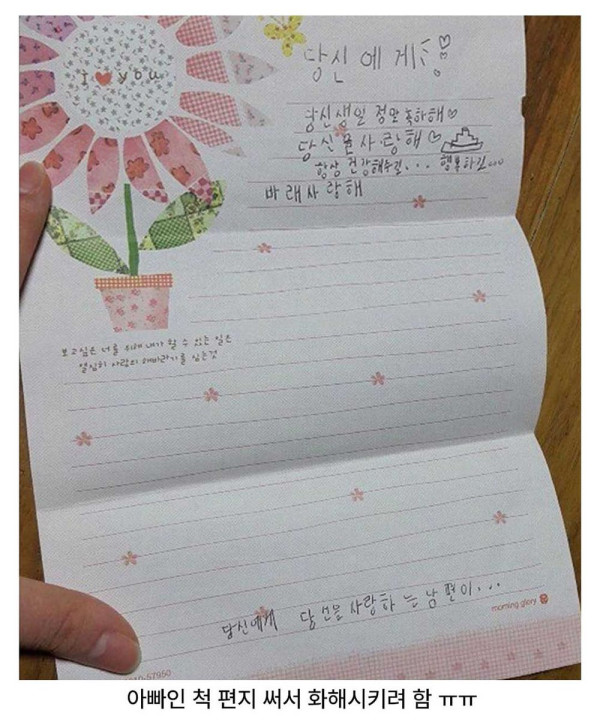 I ♥ you
당신에게
당신생일 정말 축하해♡
당신을 사랑해♡
항상 건강해주길... 행복하길...
바래사랑해
보고싶은 너를 위해 내가 할 수 있는 일은
열심히 사랑의 해바라기를 심는것
당신에게 당신을 사랑하는 남편이...
morning glory
57950
아빠인 척 편지 써서 화해시키려 함 ㅠㅠ